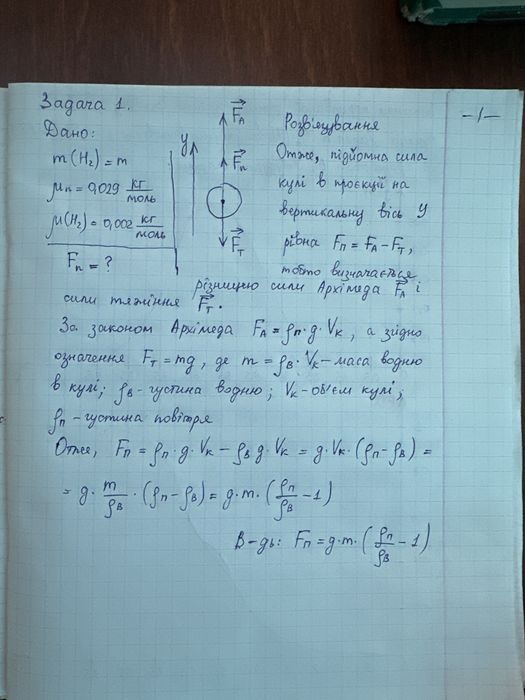 Задача 1.
-1-
Дано:
m(H₂) = m
μп = 0,029 кг/моль
μ(H₂) = 0,002 кг/моль
Fп = ?
y
F⃗A
F⃗п
F⃗т
Розв'язування
Отже, підйомна сила
кулі в проєкції на
вертикальну вісь y
рівна Fп = FA - Fт,
тобто визначається
різницею сили Архімеда F⃗A і
сили тяжіння F⃗т.
За законом Архімеда FA = ρп·g·Vк, а згідно
означення Fт = mg, де m = ρв·Vк - маса водню
в кулі; ρв - густина водню; Vк - об'єм кулі;
ρп - густина повітря
Отже, Fп = ρп·g·Vк - ρв g·Vк = g·Vк·(ρп - ρв) =
= g· m/ρв ·(ρп - ρв) = g·m·(ρп/ρв - 1)
В-дь: Fп = g·m·(ρп/ρв - 1)